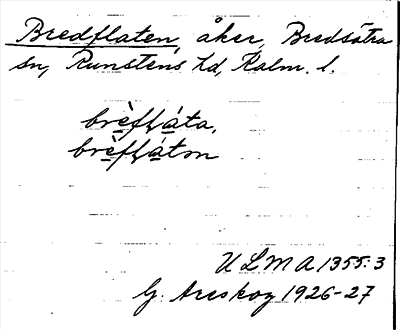 Bredflaten, åker, Bredsätra
sn, Runstens hd, Kalm. l.
brèfḷáta,
brèfḷátṇ
ULMA 1355:3
G. Areskog 1926-27